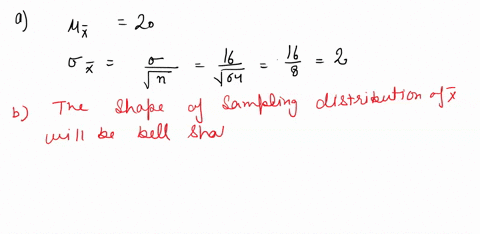 a) μx̄ = 20
σx̄ = σ/√n = 16/√64 = 16/8 = 2
b) The shape of sampling distribution of x̄
will be bell sha